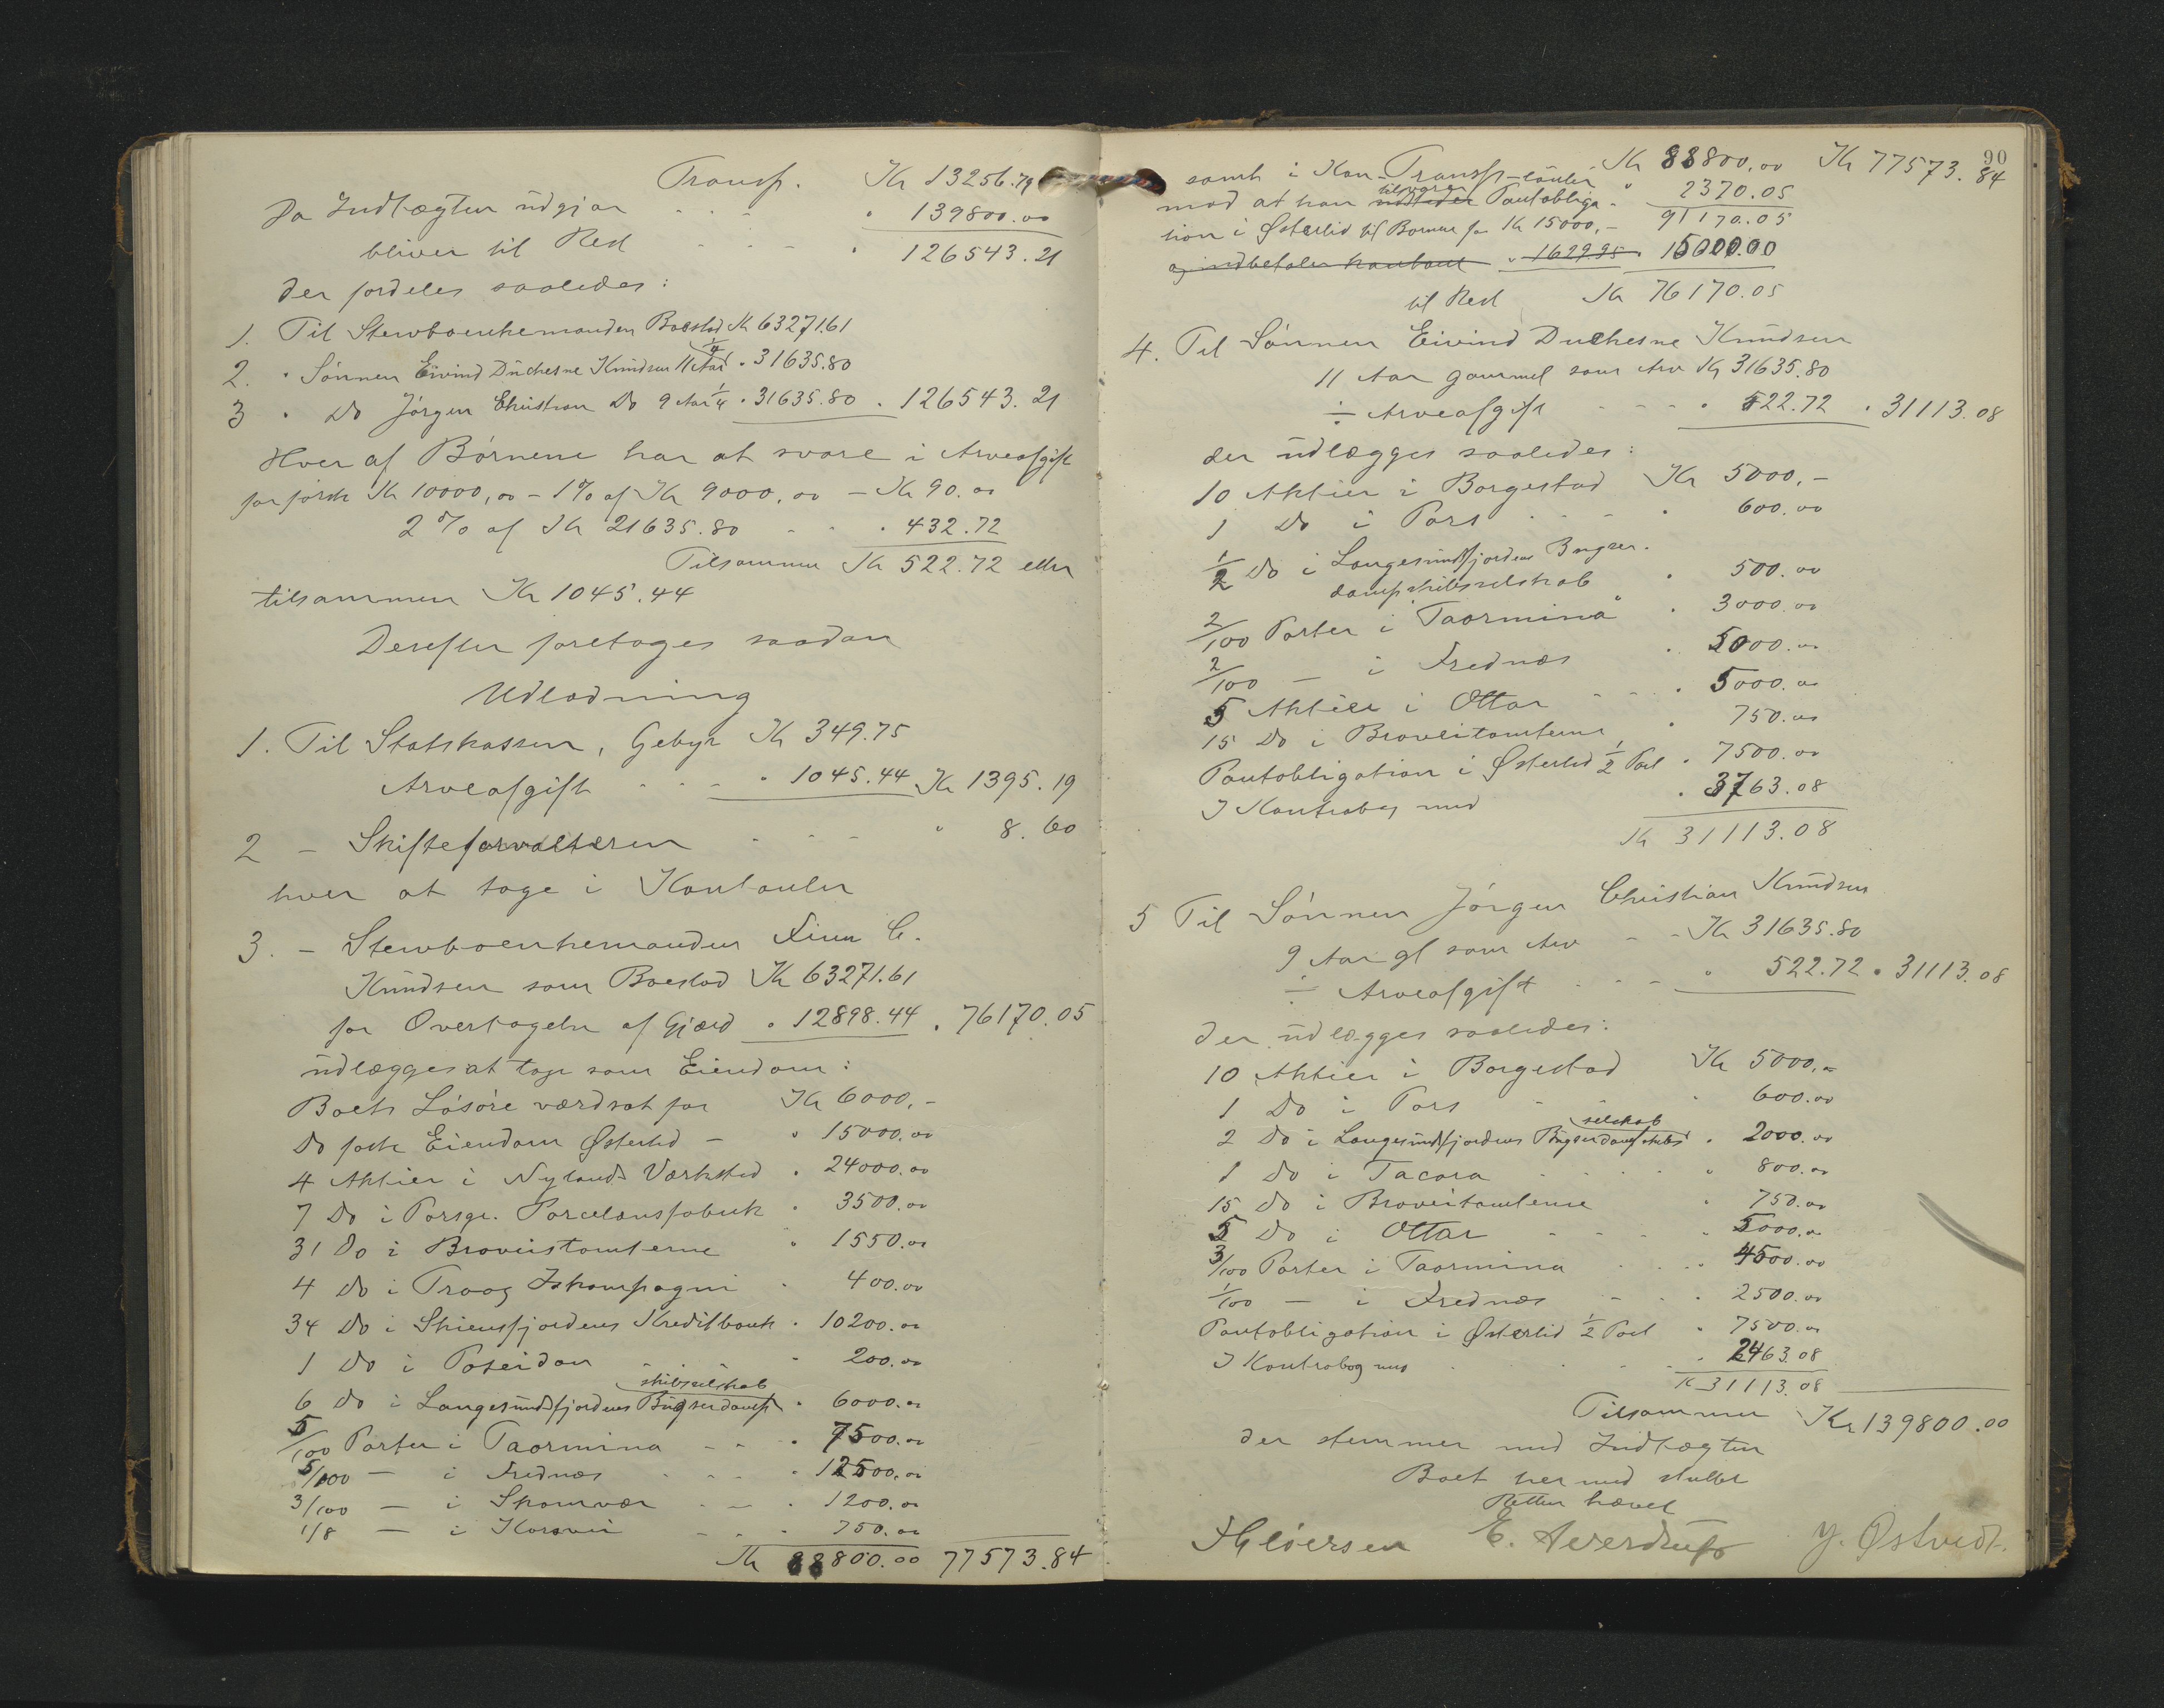 Transp. Kr 13256.79
Da Indtægten udgjør " 139800.00
bliver til Rest " 126543.21
der fordeles saaledes:
1. Til Stervboenkemanden Boeslod Kr 63271.61
2. " Sønnen Eivind Duchesne Knudsen 11 Aar 1/4 " 31635.80
3 " Do Jørgen Christian Do 9 Aar 1/4 " 31635.80 " 126543.21
Hver af Børnene har at svare i Arveafgift
for første Kr 10000,00 - 1% af Kr 9000,00 - Kr 90.00
2% af Kr 21635.80 - - " 432.72
Tilsammen Kr 522.72 eller
tilsammen Kr 1045.44
Derefter foretages saadan
Udlodning
1. Til Statskassen, Gebyr Kr 349.75
Arveafgift - - - " 1045.44 Kr 1395.19
2 - Skifteforvalteren - - - " 8.60
hver at tage i Kontanter
3. - Stervboenkemanden Finn C.
Knudsen som Boeslod Kr 63271.61
for Overtagelse af Gjæld " 12898.44 " 76170.05
udlægges at tage som Eiendom:
Boets Løsøre værdsat for Kr 6000,-
Do faste Eiendom Østerlid - " 15000.00
4 Aktier i Nylands Værksted " 24000.00
7 Do i Porsgr. Porcelænsfabrik " 3500.00
31 Do i Braveistomterne " 1550.00
4 Do i Traag Iskompagni " 400.00
34 Do i Skiensfjordens Kreditbank " 10200.00
1 Do i Poseidon - - - 200.00
skibsselskab
6 Do i Langesundsfjordens Bugserdamp " 6000.00
5/100 Parter i Taormina - - " 7500.00
5/100 - i Frednæs - - - " 12500.00
3/100 - i Skomvær - - " 1200.00
1/8 - i Korsvei - - - 750.00
Kr 88800.00 77573.84
90
Transp. Kr 88800,00 Kr 77573.84
samt i Kon-tanter " 2370.05
tilsvarer
mod at han udsteder Pantobliga- 91170.05
tion i Østerlid til Børnene for Kr 15000,-
og indbetaler kontant " 1629.95 15000.00
til Rest Kr 76170.05
4. Til Sønnen Eivind Duchesne Knudsen
11 Aar gammel som Arv Kr 31635.80
÷ Arveafgift - - - " 522.72 " 31113.08
der udlægges saaledes:
10 Aktier i Borgestad Kr 5000,-
1 Do i Pors - - - " 600.00
1/2 Do i Langesundsfjordens Bugser-
dampskibsselskab " 500.00
2/100 Parter i "Taormina" " 3000.00
2/100 - i Frednæs " 5000.00
5 Aktier i Ottar - - - " 5000.00
15 Do i Braveitomterne " 750.00
Pantobligation i Østerlid 1/2 Part " 7500.00
I Kontrabog med " 3763.08
Kr 31113.08
5 Til Sønnen Jørgen Christian Knudsen
9 Aar gl som Arv - - Kr 31635.80
÷ Arveafgift - - - " 522.72 " 31113.08
der udlægges saaledes:
10 Aktier i Borgestad Kr 5000,-
1 Do i Pors - - " 600.00
selskab
2 Do i Langesundsfjordens Bugserdampskibs " 2000.00
1 Do i Tacora - - - - " 800.00
15 Do i Braveitomterne " 750.00
5 Do i Ottar - - - - " 5000.00
3/100 Parter i Taormina - - - " 4500.00
1/100 - i Frednæs - - " 2500.00
Pantobligation i Østerlid 1/2 Part " 7500.00
I Kontrabog med - - - - " 2463.08
Kr 31113.08
Tilsammen Kr 139800.00
der stemmer med Indtægten
Boet hermed sluttet
Retten hævet
E. Sverdrup
J. Østvedt.